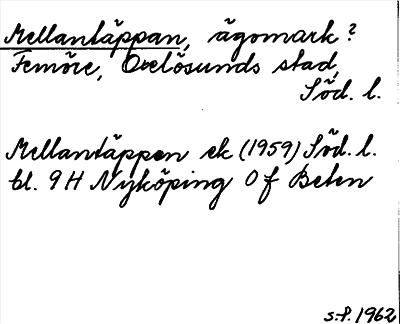 Mellantäppan, ägomark?
Femöre, Oxelösunds stad,
Söd. l.
Mellantäppen ek (1959) Söd. l.
bl. 9H Nyköping Of Beten
s-f. 1962